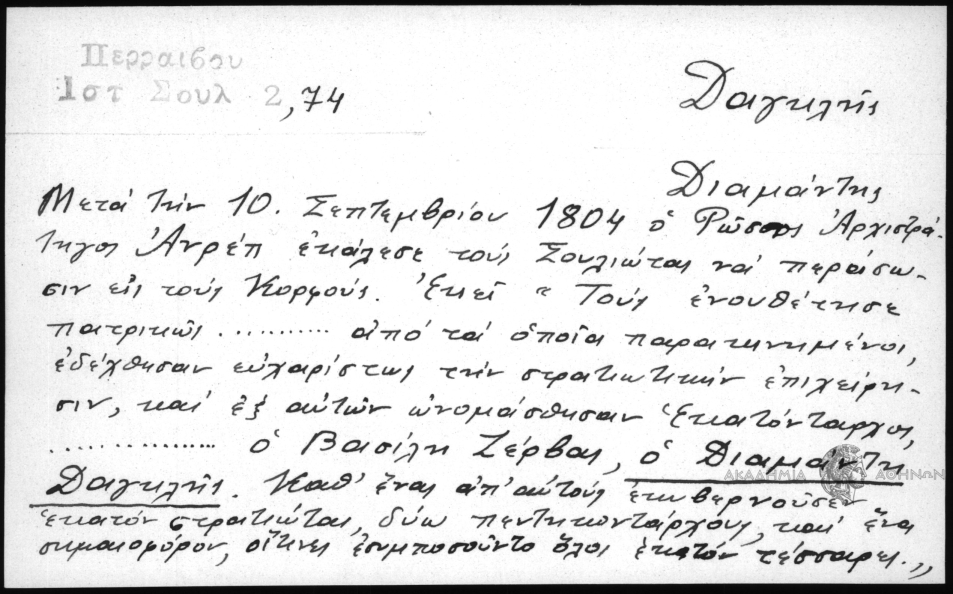 Περραιβου
Ιστ Σουλ 2,74
Δαγκλῆς
Διαμάντης
Μετά τήν 10. Σεπτεμβρίου 1804 ὁ Ρῶσσος Ἀρχιστρά-
τηγος Ἀνρέπ ἐκάλεσε τούς Σουλιώτας νά περάσω-
σιν εἰς τούς Κορφούς. Ἐκεῖ " Τούς ἐνουθέτησε
πατρικῶς .......... ἀπό τά ὁποῖα παρακινημένοι,
ἐδέχθησαν εὐχαρίστως τήν στρατιωτικήν ἐπιχείρη-
σιν, καί ἐξ αὐτῶν ὠνομάσθησαν Ἑκατόνταρχοι,
............... ὁ Βασίλη Ζέρβας, ὁ Διαμάντη
Δαγκλῆς. Καθ' ἕνας ἀπ' αὐτούς ἐκυβερνοῦσεν
ἑκατόν στρατιώτας, δύω πεντηκοντάρχους, καί ἕνα
σημαιοφόρον, οἵτινες ἐσυμποσοῦντο ὅλοι ἑκατόν τέσσαρες."
ΑΚΑΔΗΜΙΑ ΑΘΗΝΩΝ